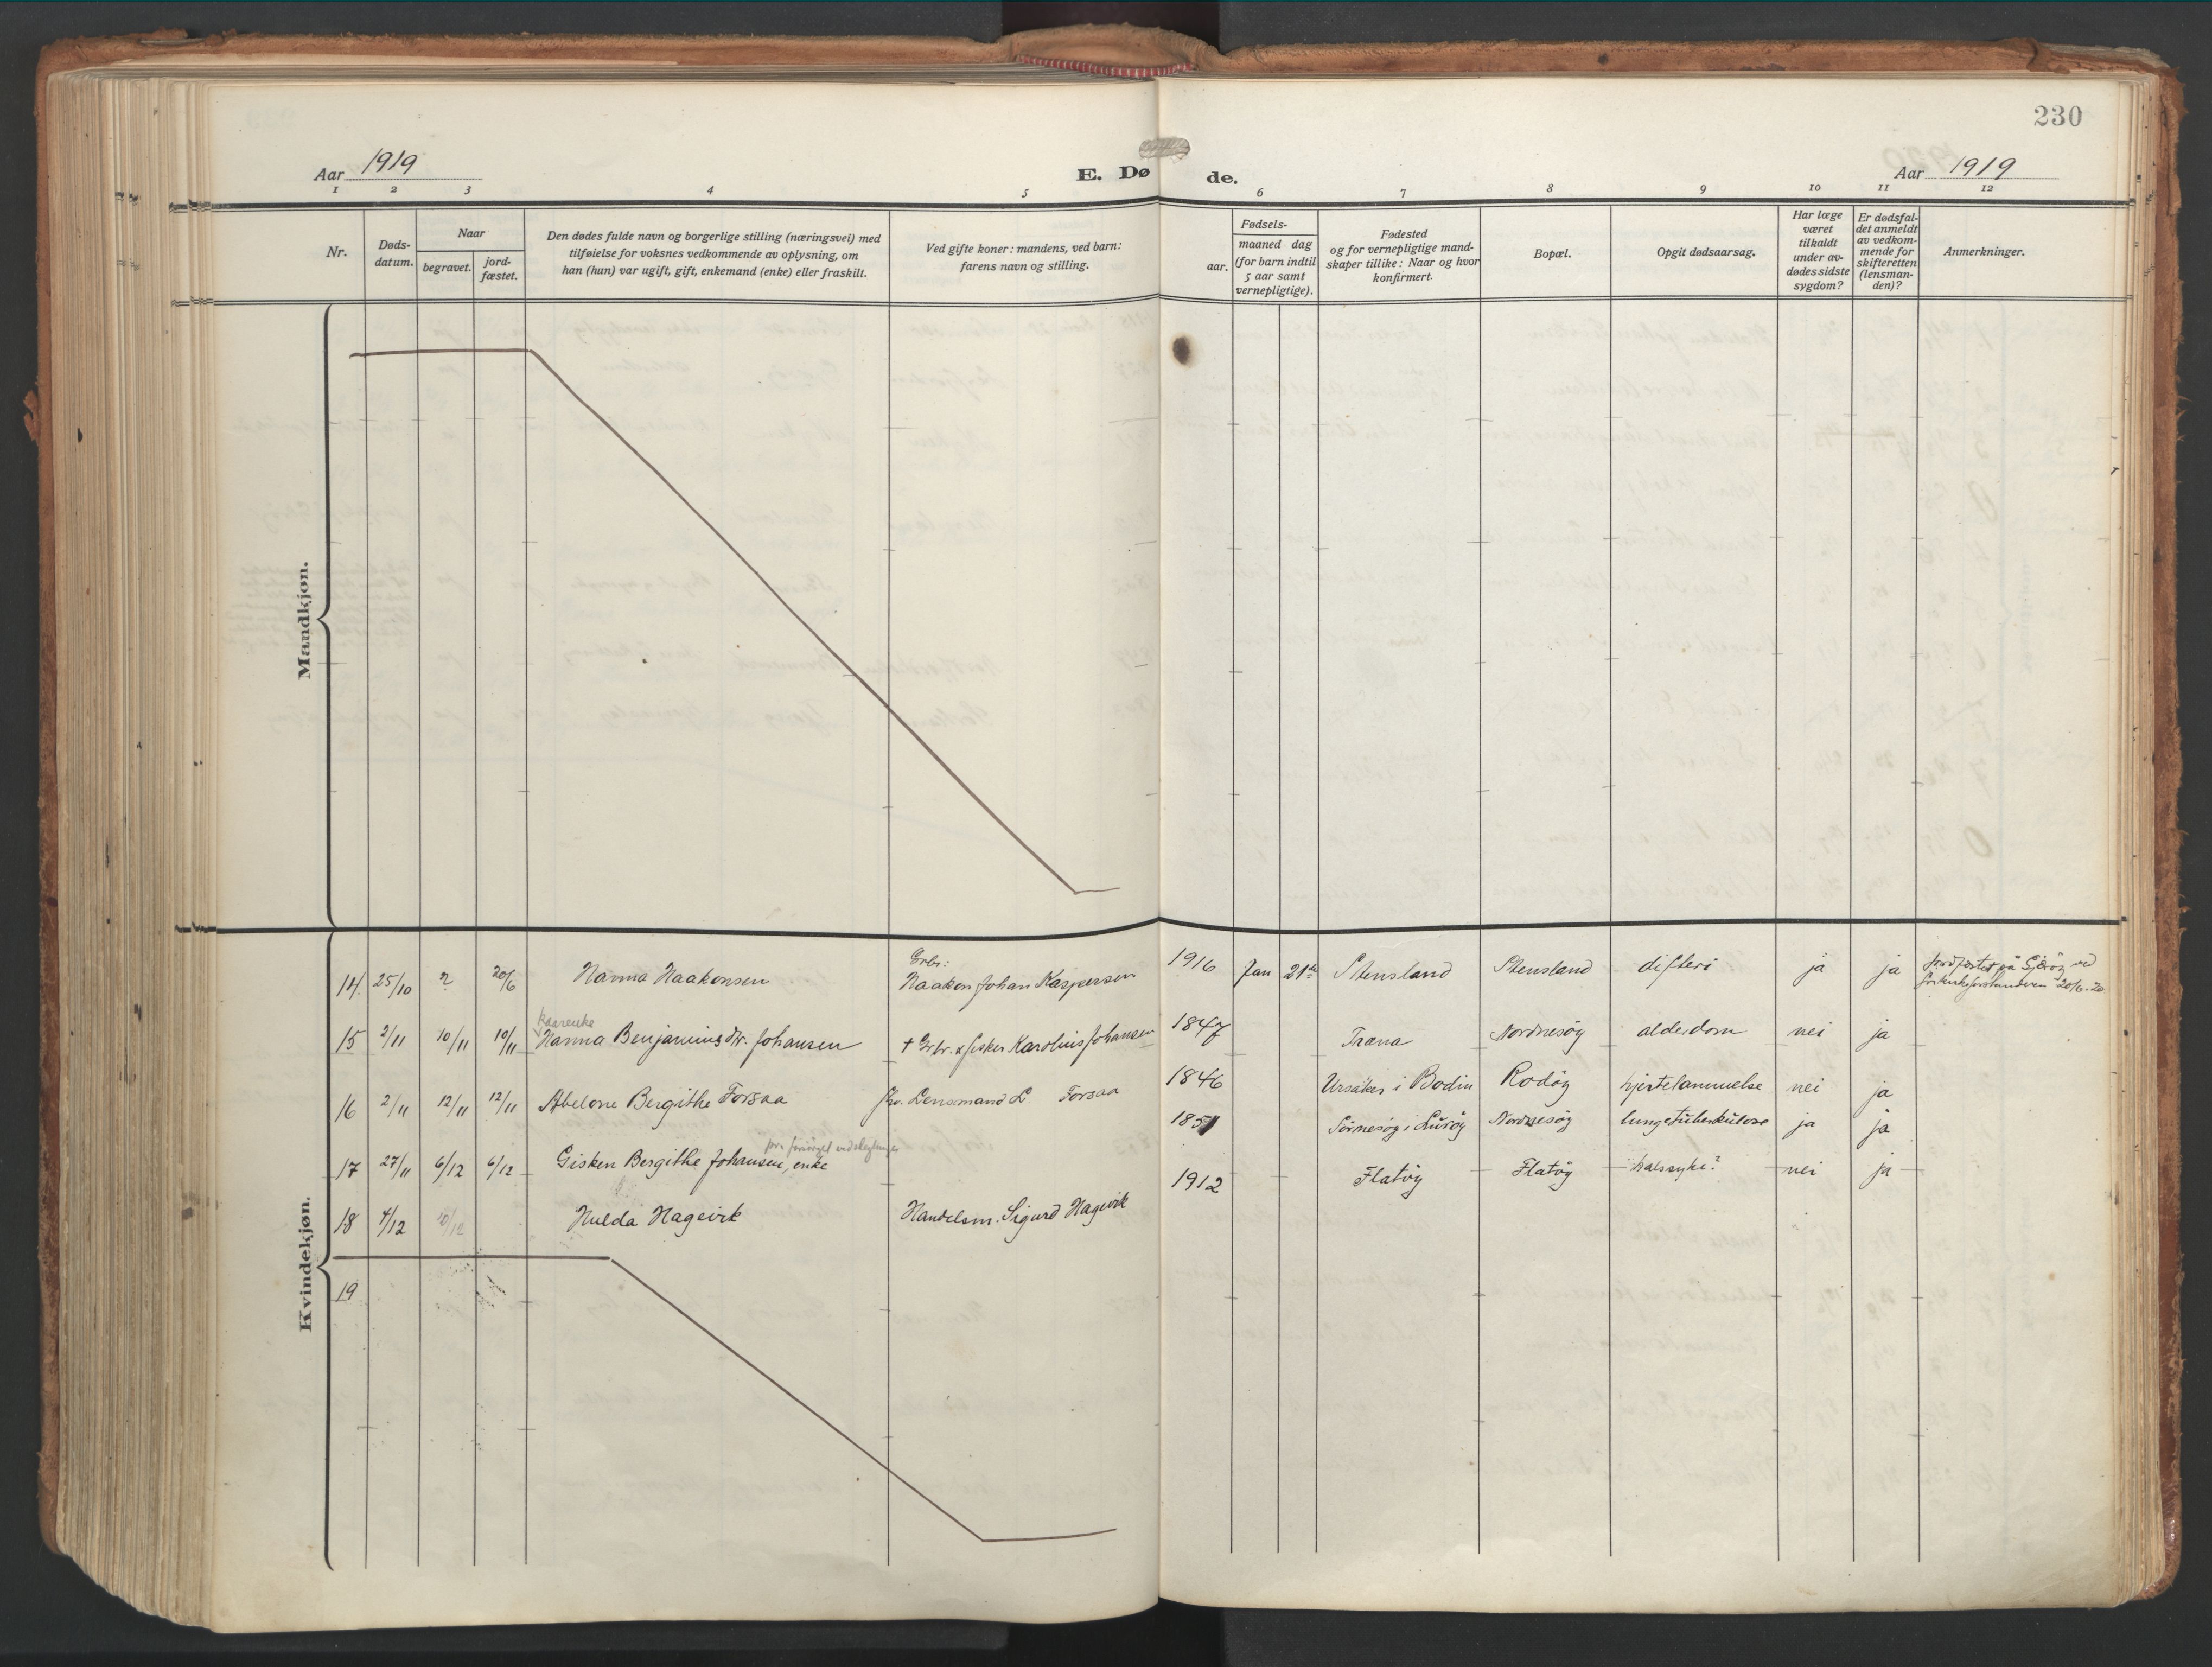 230
Aar 1919
E. Døde.
Aar 1919
1 2 3 4 5 6 7 8 9 10 11 12
Nr.
Døds-datum.
Naar
begravet.
jord-fæstet.
Den dødes fulde navn og borgerlige stilling (næringsvei) med
tilføielse for voksnes vedkommende av oplysning, om
han (hun) var ugift, gift, enkemand (enke) eller fraskilt.
Ved gifte koner: mandens, ved barn:
farens navn og stilling.
Fødsels-
aar.
maaned dag
(for barn indtil
5 aar samt
vernepligtige).
Fødested
og for vernepligtige mand-
skaper tillike: Naar og hvor
konfirmert.
Bopæl.
Opgit dødsaarsag.
Har læge
været
tilkaldt
under av-
dødes sidste
sygdom?
Er dødsfal-
det anmeldt
av vedkom-
mende for
skifteretten
(lensman-
den)?
Anmerkninger.
Mandkjøn.
Kvindekjøn.
14. 25/10 ? 20/6 Hanna Haakonsen Grbr: Haakon Johan Kaspersen 1916 Jan 21de Stensland Stensland difteri ja ja jordfæstet på Gjerøy ved 20/6-20
kaarenke
15 2/11 10/11 10/11 Hanna Benjaminsdtr. Johansen † Grbr. & fisker Karolius Johansen 1847 Træna Nordnesøy alderdom nei ja
16 2/11 12/11 12/11 Abelone Bergithe Forsaa Lensmand L Forsaa 1846 Ursaker i Bodin Rodøy hjertelammelse nei ja
17 27/11 6/12 6/12 Gisken Bergithe Johansen, enke 1851 Sørnesøy i Lurøy Nordnesøy lungetuberkulose ja ja
18 4/12 10/12 Hulda Hagevik Handelsm. Sigurd Hagevik 1912 Flatøy Flatøy halssyke? nei ja
19